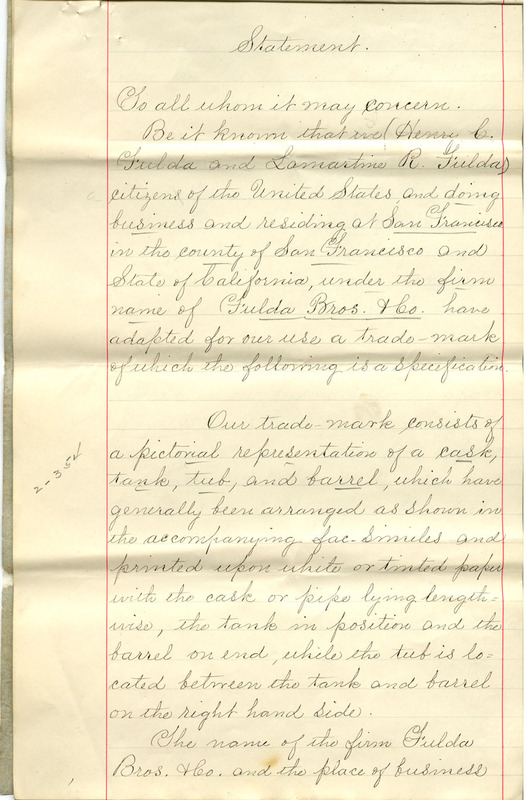 Statement.
To all whom it may concern.
Be it known that we (Henry C.
Fulda and Lamartine R. Fulda)
citizens of the United States, and doing
business and residing at San Francisco
in the county of San Francisco and
State of California, under the firm
name of Fulda Bros. & Co. have
adapted for our use a trade-mark
of which the following is a specification.
Our trade-mark consists of
a pictorial representation of a cask,
tank, tub, and barrel, which have
generally been arranged as shown in
the accompanying fac-similes and
printed upon white or tinted paper
with the cask or pipe lying length=
wise, the tank in position and the
barrel on end, while the tub is lo=
cated between the tank and barrel
on the right hand side.
The name of the firm Fulda
Bros. & Co. and the place of business